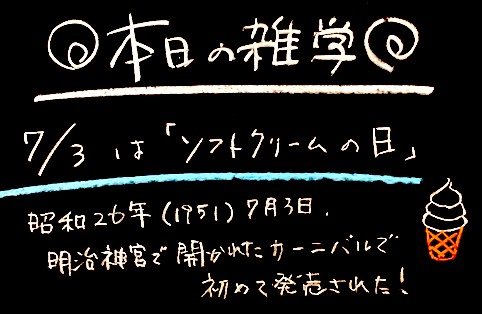 本日の雑学
7/3 は「ソフトクリームの日」
昭和26年(1951)7月3日.
明治神宮で開かれたカーニバルで
初めて発売された!